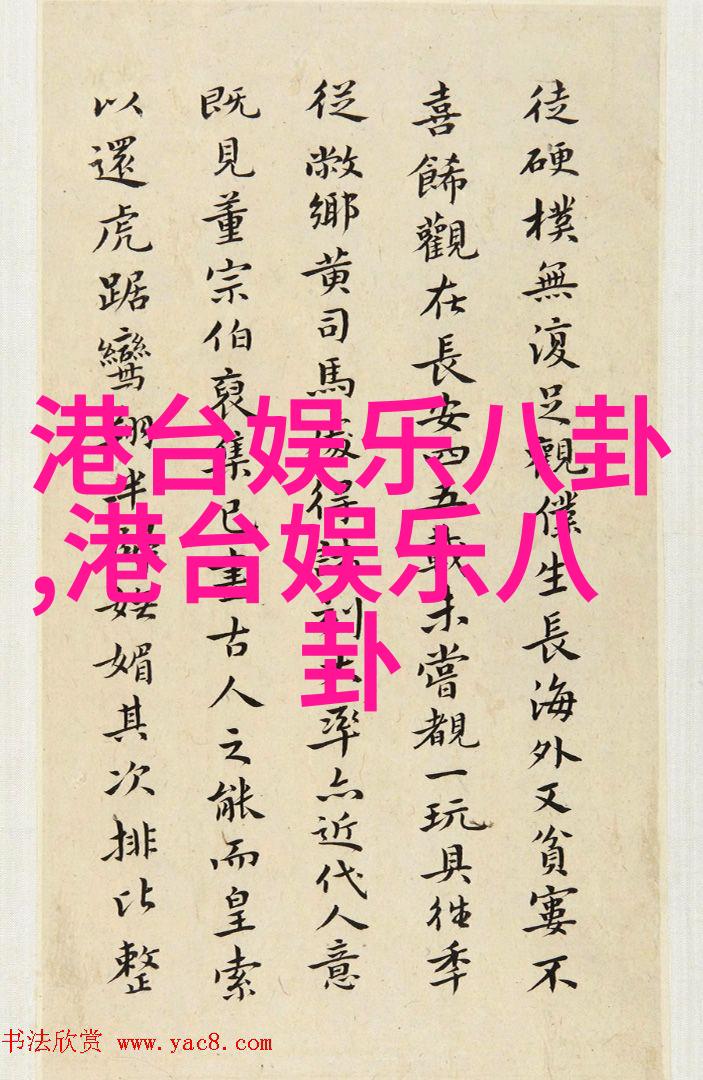 徒硬樸無復足觀僕生長海外又貧窶不
喜餙觀在長安四五載未嘗覩一玩具往秊
從敝鄉黄司馬處得刻大率亦近代人意
既見董宗伯裒集已古人之能而皇索
以還虎踞鸞翔半媚其次排比整
港台娱乐八卦
,港台娱乐八
卦
书法欣赏 www.yac8.com